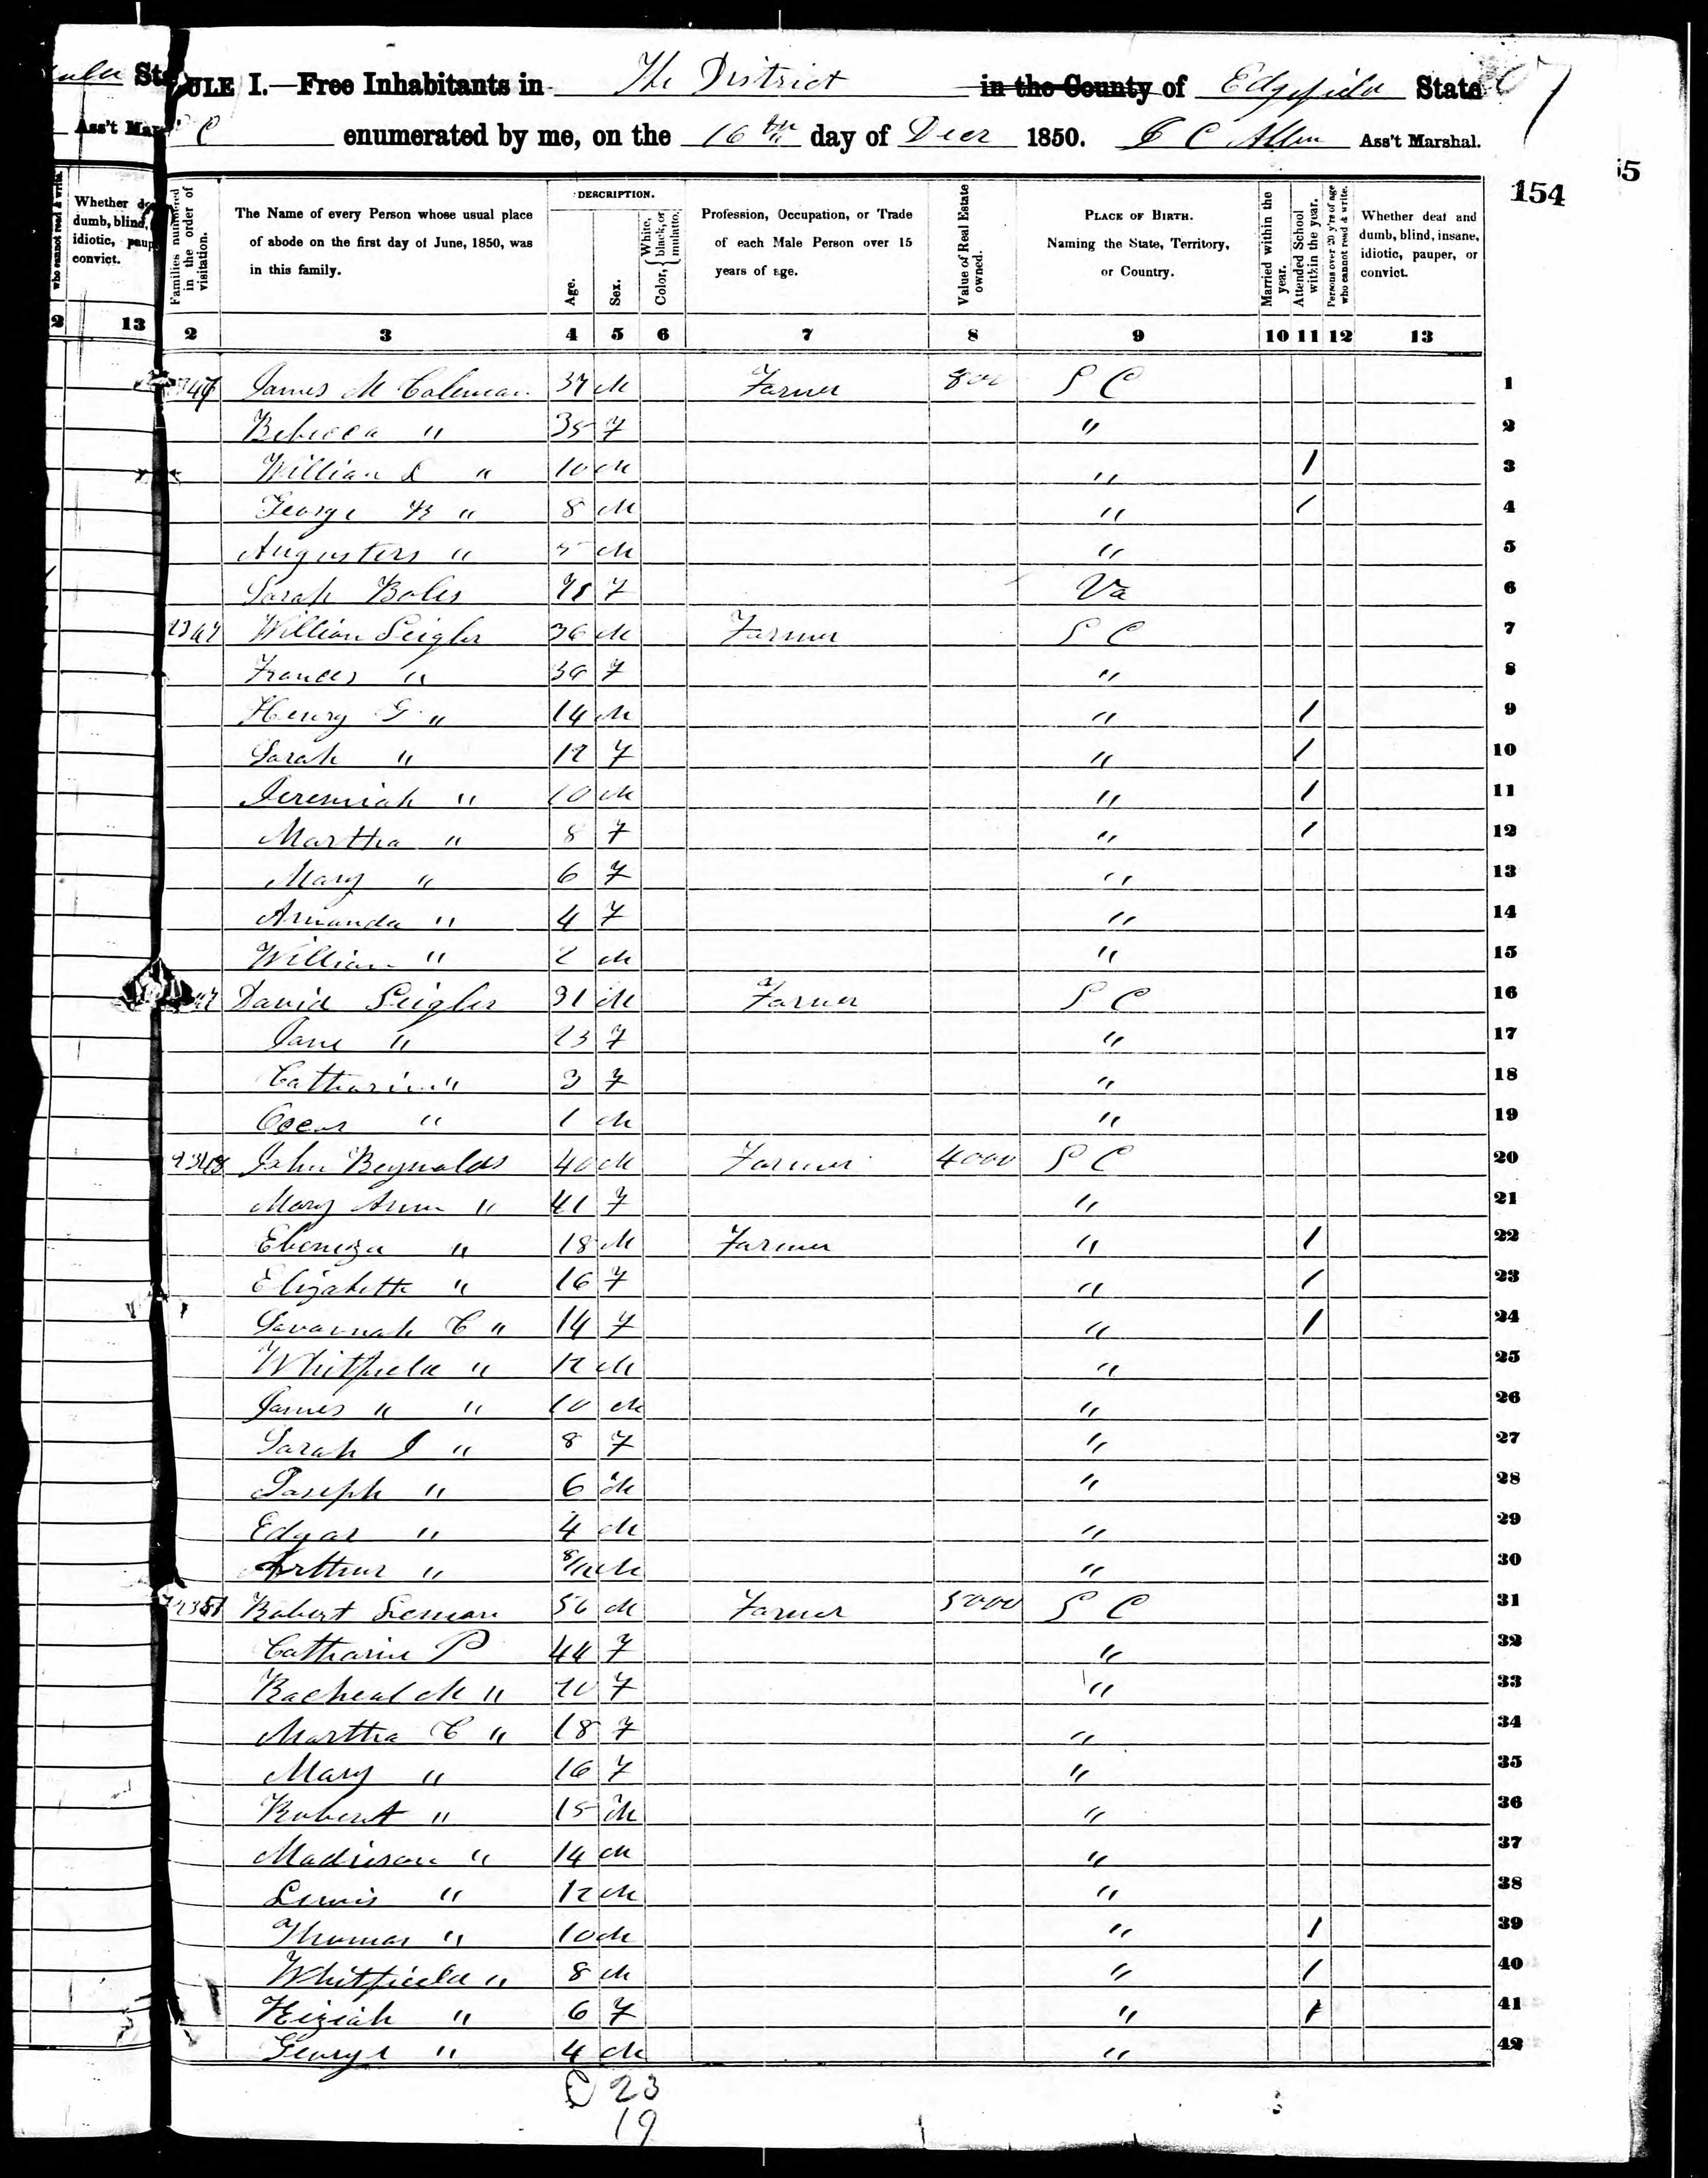 ula Sta
ULE I.—Free Inhabitants in The District in the County of Edgefield State
Ass't Mar C enumerated by me, on the 16th day of Decr 1850. C C Allen Ass't Marshal.
55
154
who cannot read & write.
Whether de
dumb, blind,
idiotic, paup
convict.
Families numbered in the order of visitation.
The Name of every Person whose usual place of abode on the first day of June, 1850, was in this family.
DESCRIPTION.
Age.
Sex.
Color, { White, black, or mulatto.
Profession, Occupation, or Trade of each Male Person over 15 years of age.
Value of Real Estate owned.
PLACE OF BIRTH. Naming the State, Territory, or Country.
Married within the year.
Attended School within the year.
Persons over 20 y'rs of age who cannot read & write.
Whether deaf and dumb, blind, insane, idiotic, pauper, or convict.
2 13 2 3 4 5 6 7 8 9 10 11 12 13
James M Coleman 37 M Farmer 800 S C 1
Rebecca " 35 F " 2
William L " 10 M " 1 3
George W " 8 M " 1 4
Augusters " 5 M " 5
Sarah Boles 71 F Va 6
William Seigler 36 M Farmer S C 7
Frances " 39 F " 8
Henry G " 14 M " 1 9
Sarah " 12 F " 1 10
Jeremiah " 10 M " 1 11
Martha " 8 F " 1 12
Mary " 6 F " 13
Amanda " 4 F " 14
William " 2 M " 15
David Seigler 31 M Farmer S C 16
Jane " 23 F " 17
Catharine " 3 F " 18
Oscar " 1 M " 19
John Reynolds 40 M Farmer 4000 S C 20
Mary Ann " 41 F " 21
Ebeneza " 18 M Farmer " 1 22
Elizabeth " 16 F " 1 23
Savannah C " 14 F " 1 24
Whitfield " 12 M " 25
James " " 10 M " 26
Sarah J " 8 F " 27
Joseph " 6 M " 28
Edgar " 4 M " 29
Arthur " 8/12 M " 30
Robert 56 M Farmer 5000 S C 31
Catharine P 44 F " 32
Racheal M " 20 F " 33
Martha C " 18 F " 34
Mary " 16 F " 35
Robert " 15 M " 36
Madison " 14 M " 37
Lewis " 12 M " 38
Thomas " 10 M " 1 39
Whitfield " 8 M " 1 40
Keziah " 6 F " 1 41
George " 4 M " 42
23
19